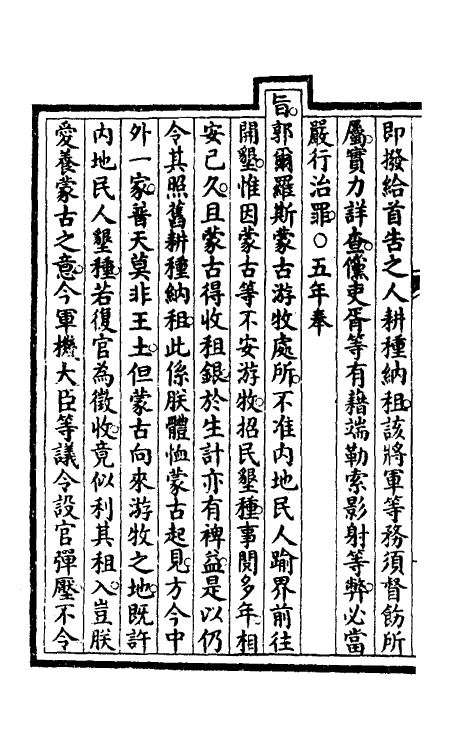 即撥給首告之人耕種納租。該將軍等務須督飭所
屬。實力詳查。儻吏胥等有藉端勒索影射等弊。必當
嚴行治罪。○五年奉
旨。郭爾羅斯蒙古游牧處所。不准內地民人踰界前往
開墾。惟因蒙古等不安游牧。招民墾種。事閱多年。相
安已久。且蒙古得收租銀。於生計亦有裨益。是以仍
令其照舊耕種納租。此係朕體恤蒙古起見。方今中
外一家。普天莫非王土。但蒙古向來游牧之地。既許
內地民人墾種。若復官為徵收。竟似利其租入。豈朕
愛養蒙古之意。今軍機大臣等議令設官彈壓不令